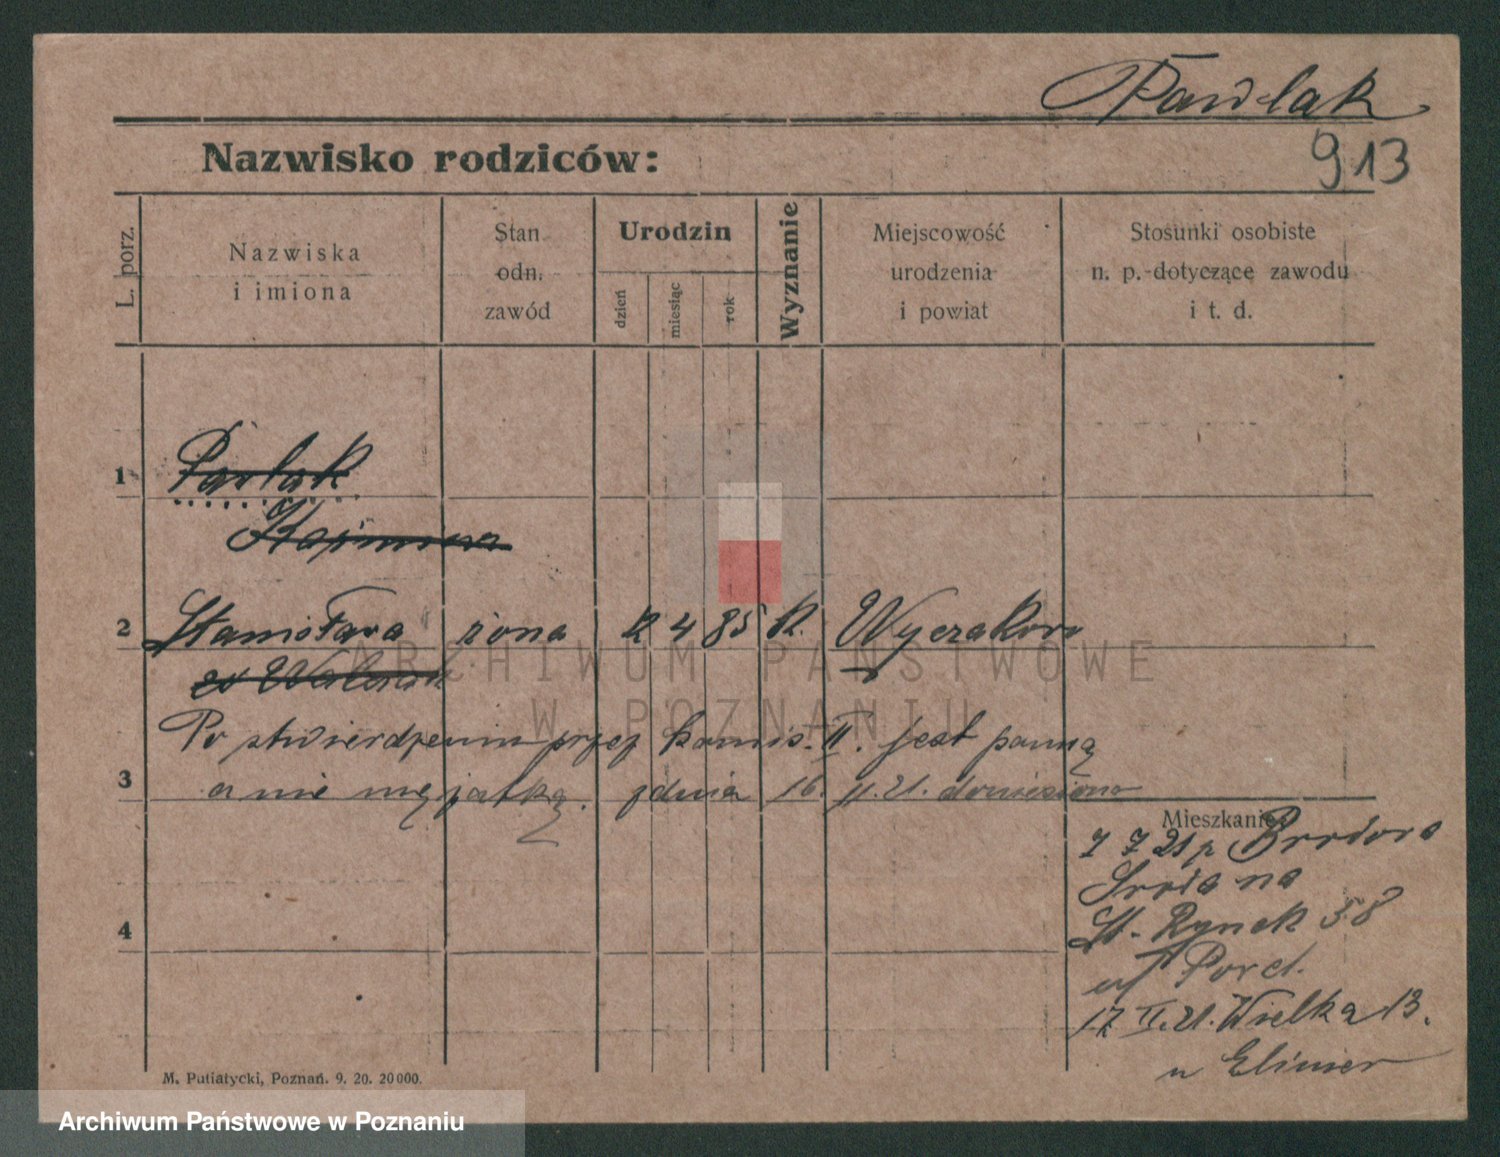 Pawlak
913
Nazwisko rodziców:
L. porz.
Nazwiska
i imiona
Stan
odn.
zawód
Urodzin
dzień
miesiąc
rok
Wyznanie
Miejscowość
urodzenia
i powiat
Stosunki osobiste
n. p. dotyczące zawodu
i t. d.
1
Pawlak
Kazimierz
2 Stanisława żona 4 85 k.
ARCHIWUM PAŃSTWOWE
W POZNANIU
Po stwierdzeniu przez komis. II. jest panną
3 a nie mężatką. zdnia 16. II. 21. doniesiono
Mieszkanie:
St. Rynek 58
4
II. 21. Wielka 13.
u
M. Putiatycki, Poznań. 9. 20. 20000.
Archiwum Państwowe w Poznaniu